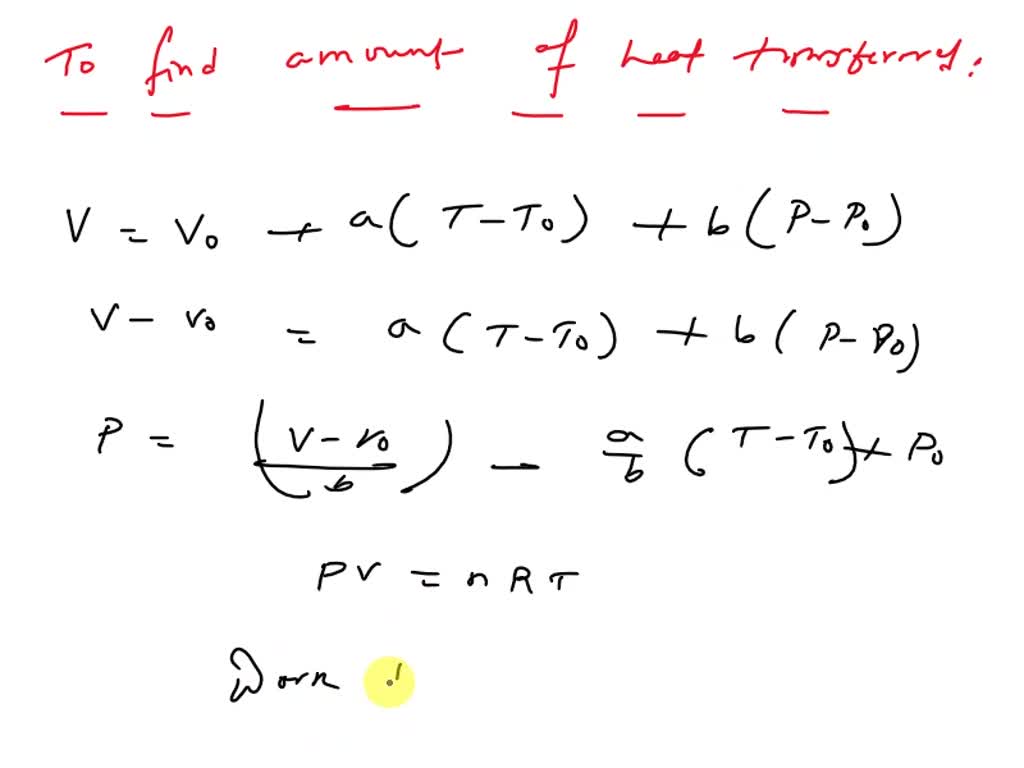 To find amount of heat transferred:
V = V₀ + a(T - T₀) + b(P - P₀)
V - V₀ = a(T - T₀) + b(P - P₀)
P = (V - V₀ / b) - a/b (T - T₀) + P₀
PV = nRT
Work